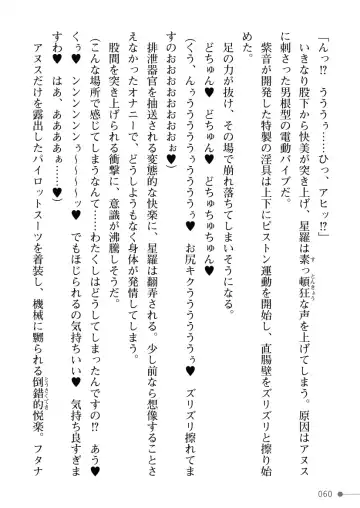 「んっ!? うううぅ……ひっ、アヒッ!?」
いきなり股下から快美が突き上げ、星羅は素っ頓狂な声を上げてしまう。原因はアヌス
に刺さった男根型の電動バイブだ。
紫音が開発した特製の淫具は上下にピストン運動を開始し、直腸壁をズリズリと擦り始
めた。
どちゅん♥ どちゅん♥ どちゅちゅちゅん♥
足の力が抜け、その場で崩れ落ちてしまいそうになる。
(くう、んぅうううううううううぅ♥ お尻キクうううううぅ♥ ズリズリ擦れてま
すのおおおおおおおぉ♥)
排泄器官を抽送される変態的な快楽に、星羅は翻弄される。少し前なら想像することさ
えなかったアナルオナニーで、どうしようもなく身体が発情してしまう。
股間を突き上げられる衝撃に、意識が沸騰しそうだ。
(こんな場所で感じてしまうなんて……わたくしはどうしてしまったんですの!? あう♥
くぅ♥ ンンンンンンぅ〜〜〜〜ッ♥ でもほじられるの気持ちいい♥ 気持ち良すぎま
すわ♥ はあ、ああああぁ……♥)
アヌスだけを露出したパイロットスーツを着装し、機械に嬲られる倒錯的悦楽。フタナ
060